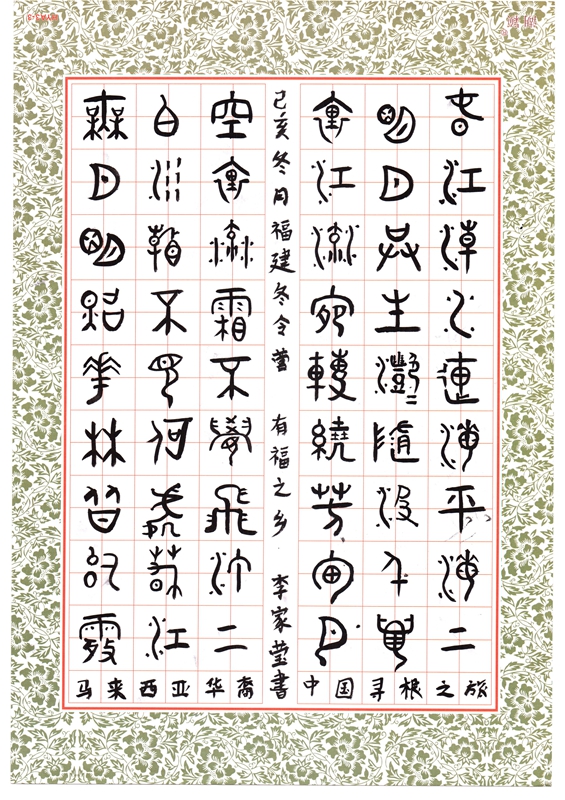 春江潮水連海平海上
明月共生灩〻隨波千萬
裏江流宛轉繞芳甸月
己亥冬月福建冬令营 有福之乡 李家莹書
空裏流霜不覺飛汀上
白沙看不見何處春江
無月明照花林皆似霰
马来西亚华裔
中国寻根之旅